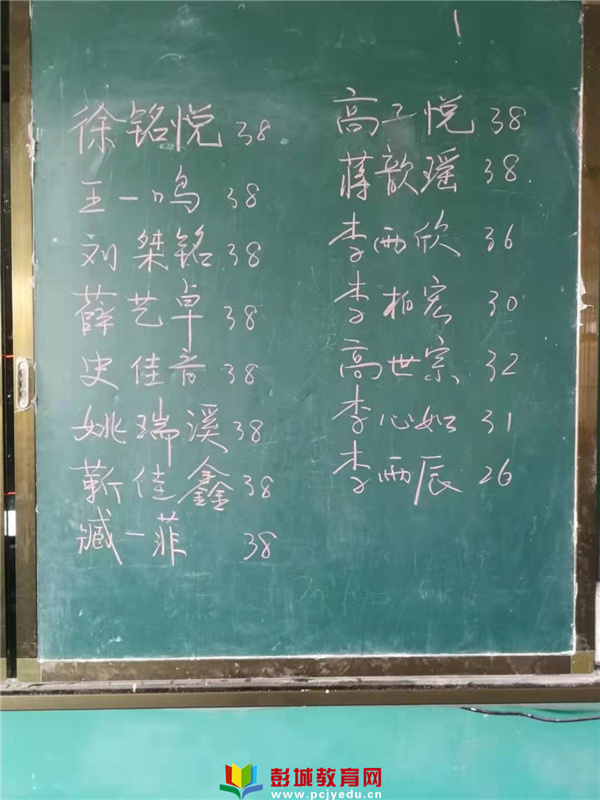 徐铭悦 38
王一鸣 38
刘桀铭 38
薛艺卓 38
史佳音 38
姚瑞溪 38
靳佳鑫 38
臧一菲 38
高子悦 38
蒋歆瑶 38
李雨欣 36
李柏宏 30
高世宗 32
李心如 31
李雨辰 26
彭城教育网
www.pcjyedu.cn